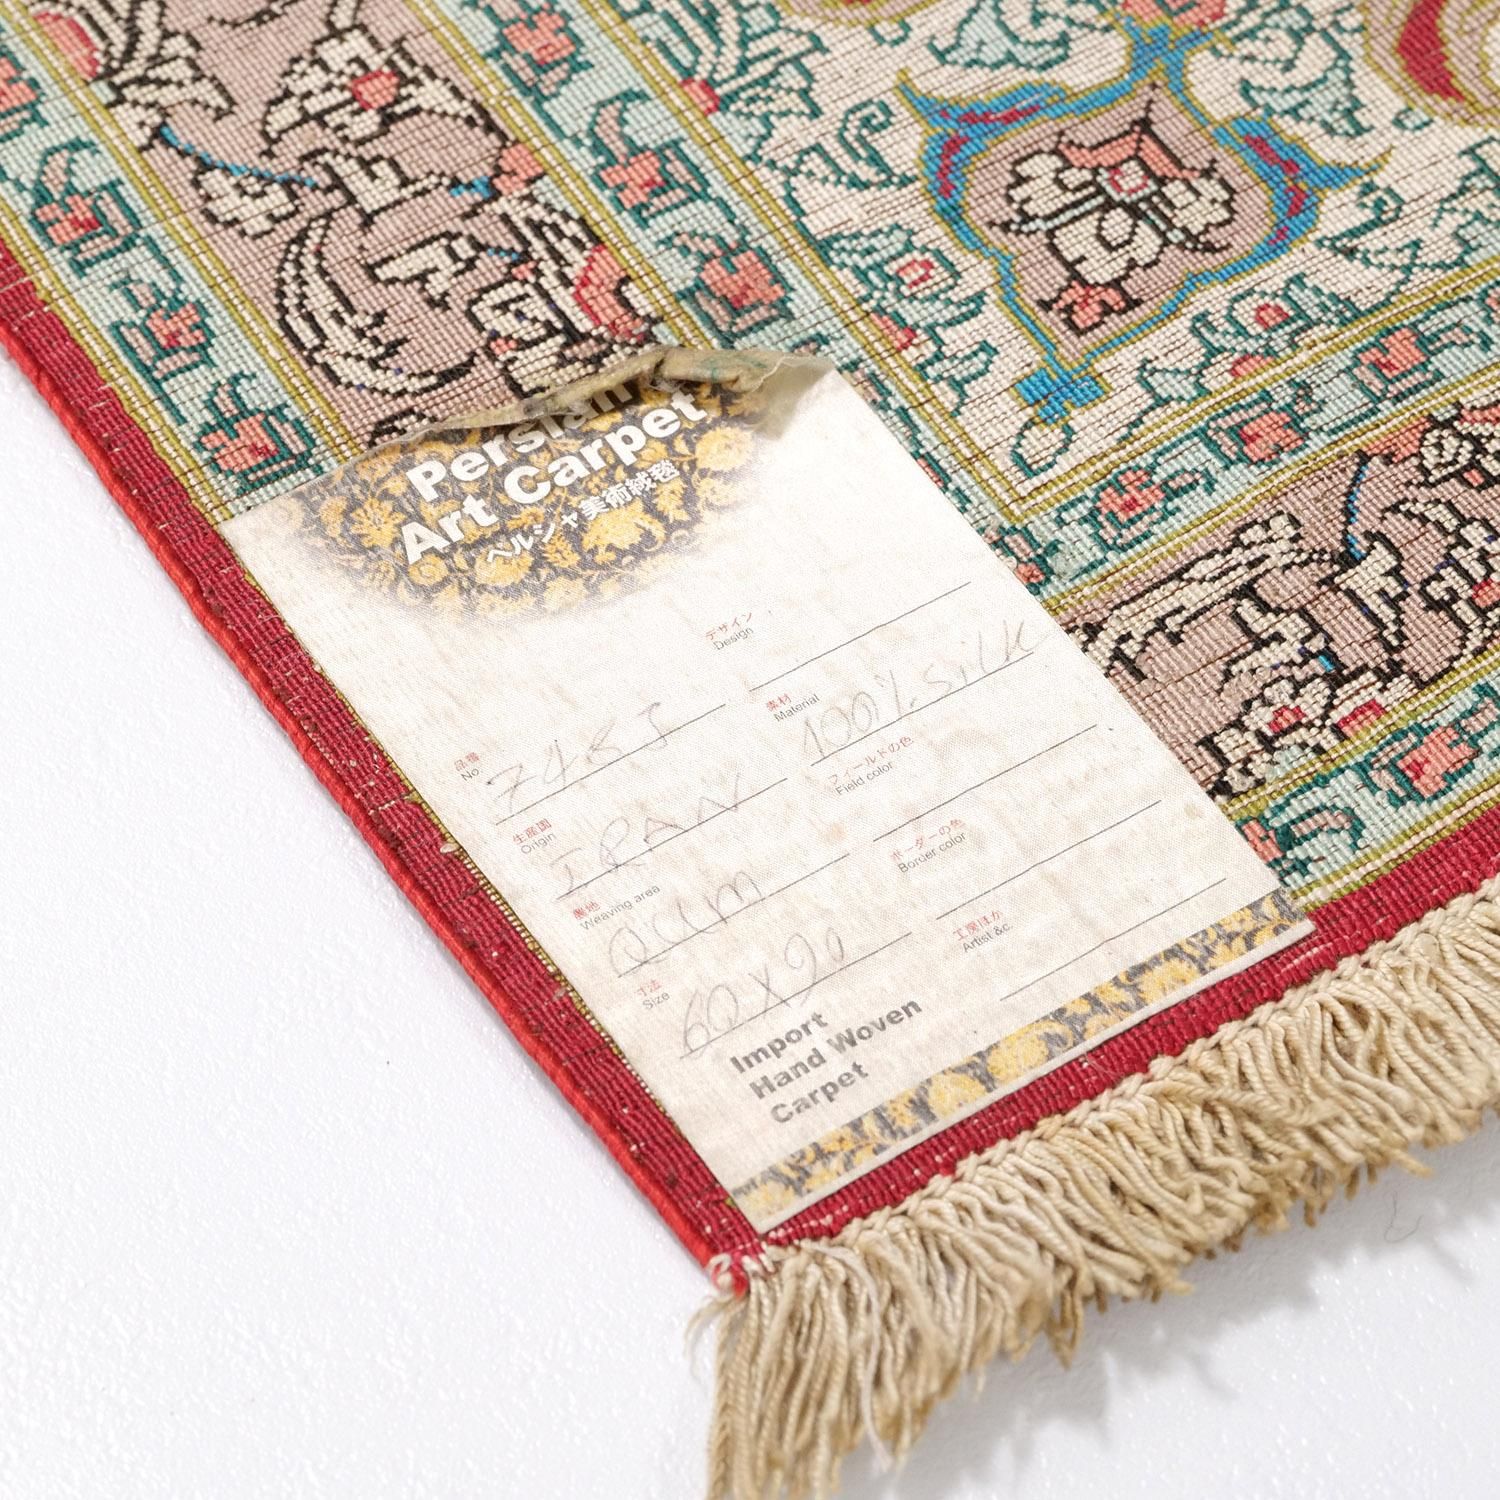 Persian
Art Carpet
ペルシャ美術絨毯
品番
No 7485
生産国
Origin IRAN
産地
Weaving area QUM
寸法
Size 60X90
デザイン
Design
素材
Material 100% silk
フィールドの色
Field color
ボーダーの色
Border color
工房ほか
Artist &c
Import
Hand Woven
Carpet